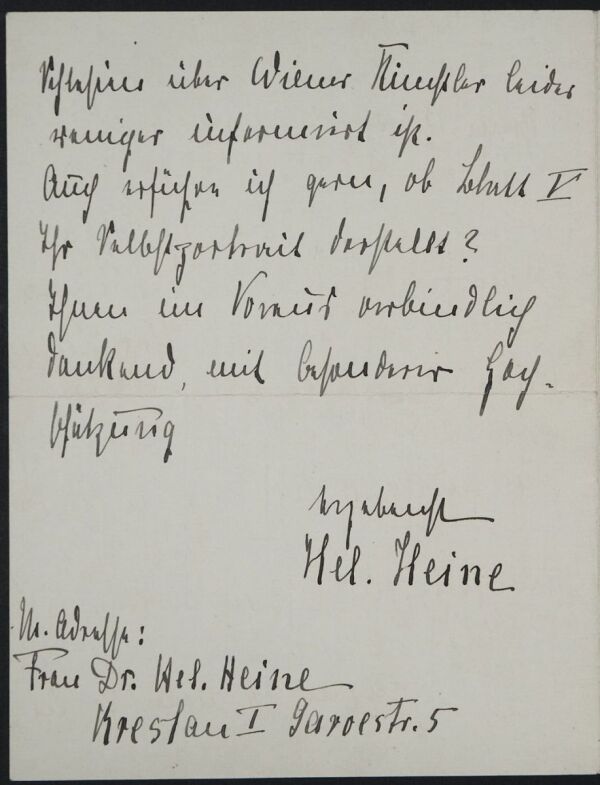 Schlesien über Wiener Künstler leider
weniger informirt ist.
Auch erführe ich gern, ob Blatt V
Ihr Selbstportrait darstellt?
Ihnen im Voraus verbindlich
dankend, mit besonderer Hoch-
schätzung
ergebenst
Hel. Heine
M. Adresse:
Frau Dr. Hel. Heine
Breslau I Garvestr. 5